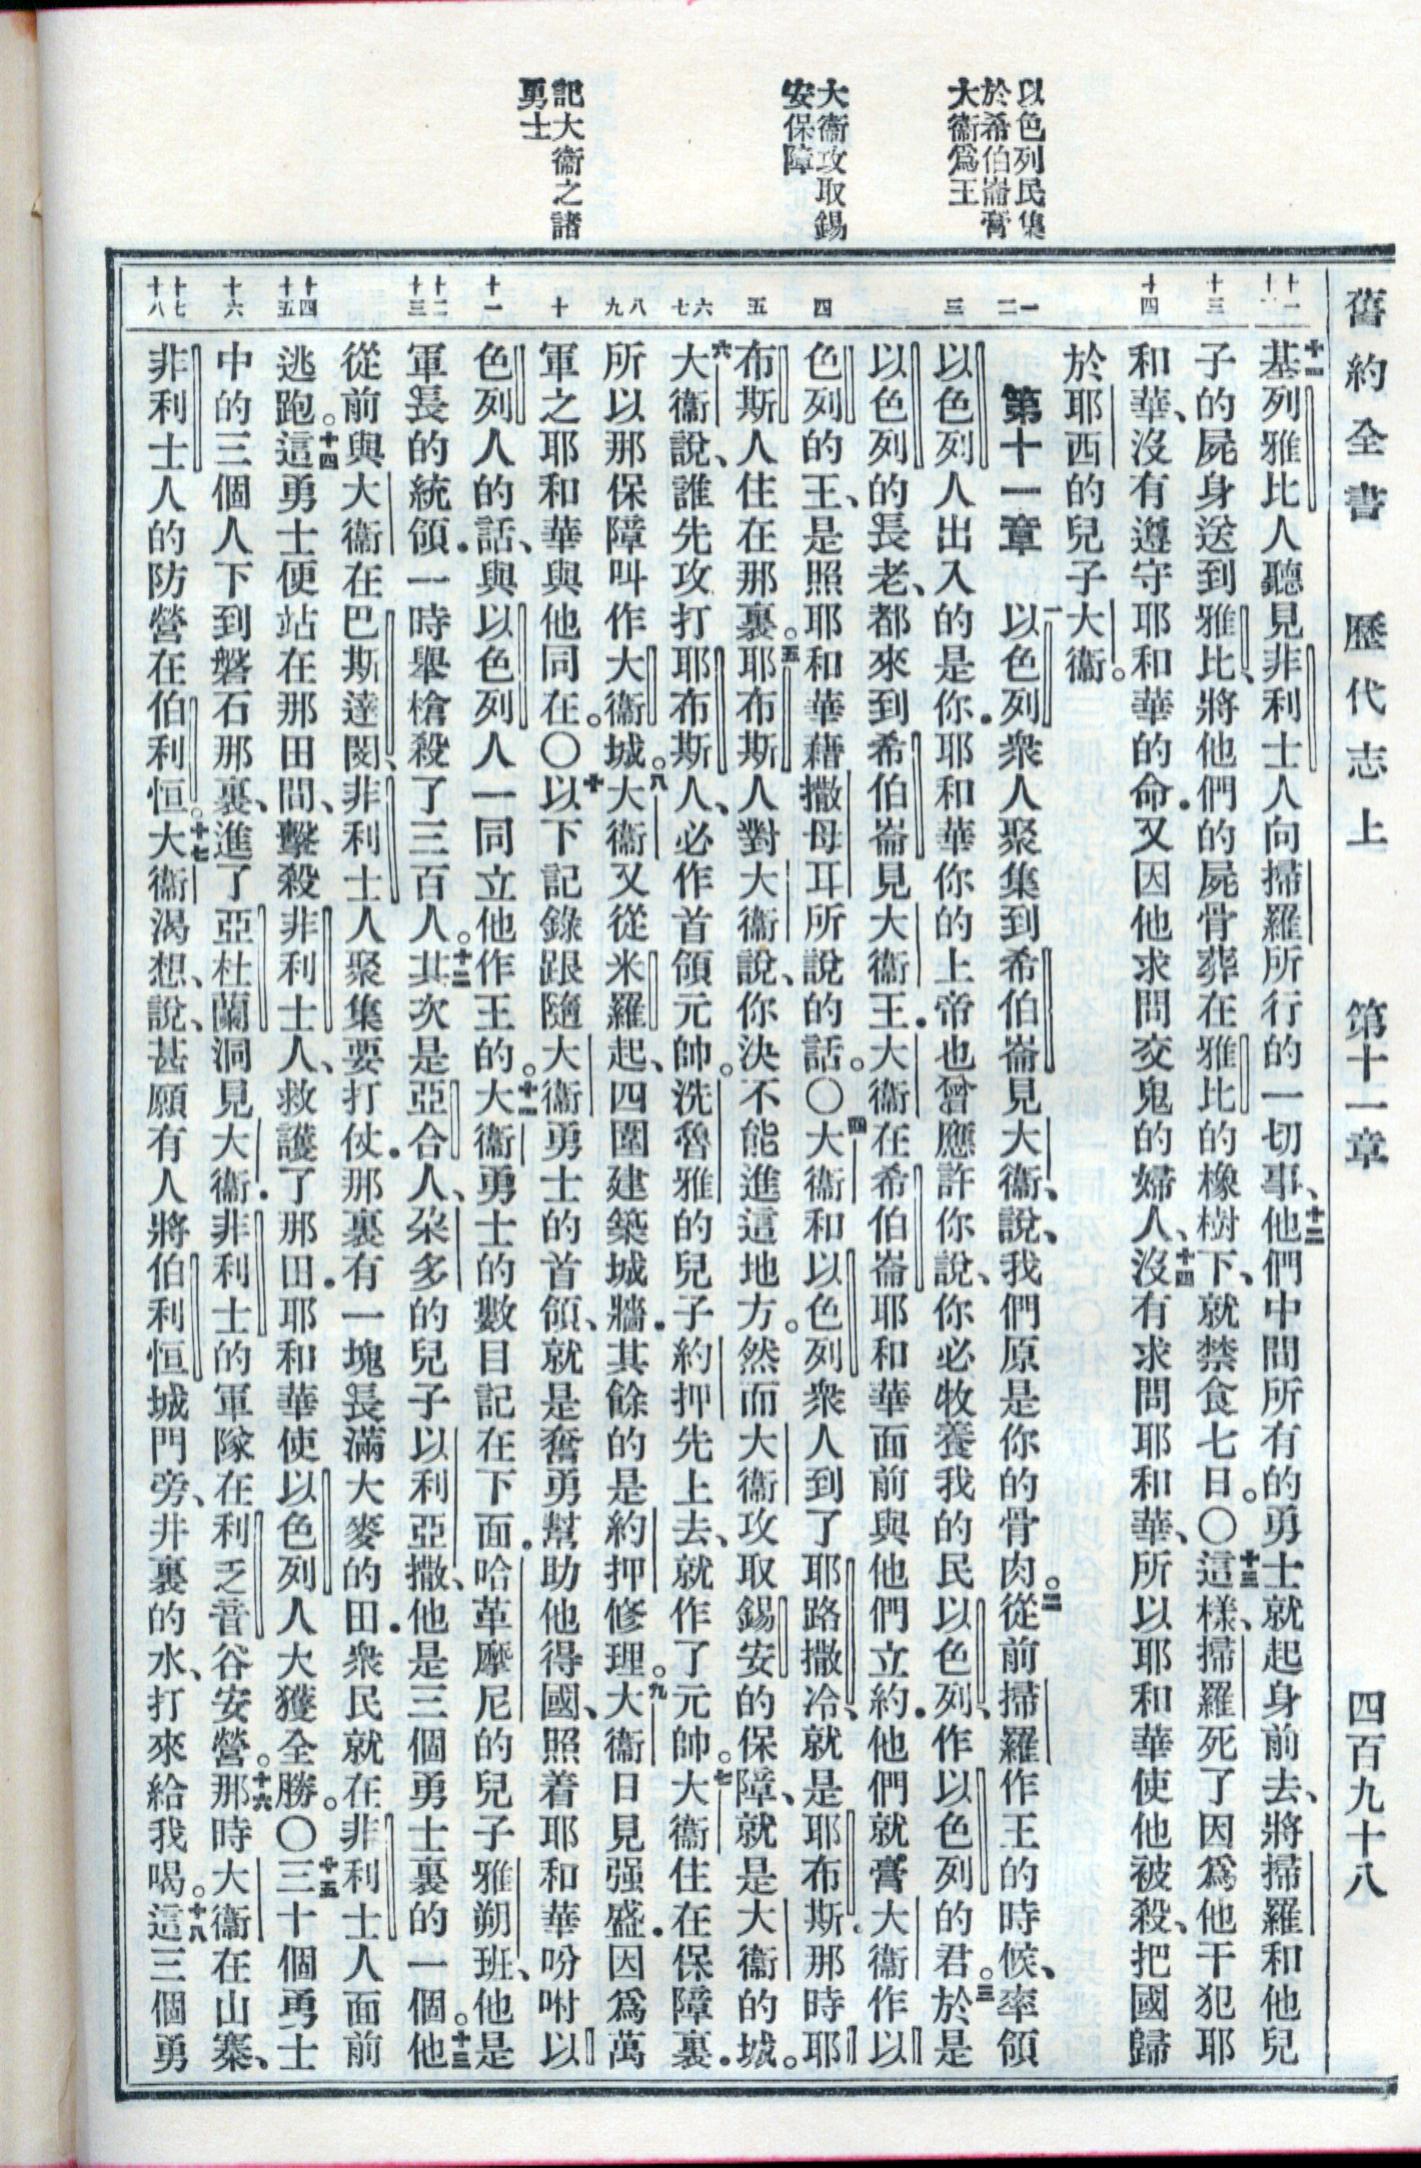 舊約全書　歷代志上　第十一章　四百九十八
以色列民集
於希伯崙膏
大衞爲王
大衞攻取錫
安保障
記大衞之諸
勇士
十一 十二
十三
十四
一 二
三
四
五
六 七
八 九
十
十一
十二 十三
十四 十五
十六
十七 十八
十一基列雅比人聽見非利士人向掃羅所行的一切事、十二他們中間所有的勇士就起身前去、將掃羅和他兒
子的屍身送到雅比、將他們的屍骨葬在雅比的橡樹下、就禁食七日。〇十三這樣、掃羅死了因爲他干犯耶
和華、沒有遵守耶和華的命．又因他求問交鬼的婦人、十四沒有求問耶和華、所以耶和華使他被殺、把國歸
於耶西的兒子大衞。
第十一章　一以色列衆人聚集到希伯崙見大衞、說、我們原是你的骨肉。二從前掃羅作王的時候、率領
以色列人出入的是你．耶和華你的上帝也曾應許你說、你必牧養我的民以色列、作以色列的君。三於是
以色列的長老、都來到希伯崙見大衞王．大衞在希伯崙耶和華面前與他們立約．他們就膏大衞作以
色列的王、是照耶和華藉撒母耳所說的話。〇四大衞和以色列衆人到了耶路撒冷、就是耶布斯．那時耶
布斯人住在那裏。五耶布斯人對大衞說、你決不能進這地方。然而大衞攻取錫安的保障、就是大衞的城。
六大衞說、誰先攻打耶布斯人、必作首領元帥。洗魯雅的兒子約押先上去、就作了元帥。七大衞住在保障裏．
所以那保障叫作大衞城。八大衞又從米羅起、四圍建築城牆．其餘的是約押修理。九大衞日見强盛．因爲萬
軍之耶和華與他同在。〇十以下記錄跟隨大衞勇士的首領、就是奮勇幫助他得國、照着耶和華吩咐以
色列人的話、與以色列人一同立他作王的。十一大衞勇士的數目記在下面．哈革摩尼的兒子雅朔班、他是
軍長的統領．一時舉槍殺了三百人。十二其次是亞合人、朶多的兒子以利亞撒、他是三個勇士裏的一個。十三他
從前與大衞在巴斯達閔、非利士人聚集要打仗．那裏有一塊長滿大麥的田．衆民就在非利士人面前
逃跑。十四這勇士便站在那田間、擊殺非利士人、救護了那田．耶和華使以色列人大獲全勝。〇十五三十個勇士
中的三個人下到磐石那裏、進了亞杜蘭洞見大衞．非利士的軍隊在利乏音谷安營。十六那時大衞在山寨、
非利士人的防營在伯利恒。十七大衞渴想、說、甚願有人將伯利恒城門旁、井裏的水、打來給我喝。十八這三個勇